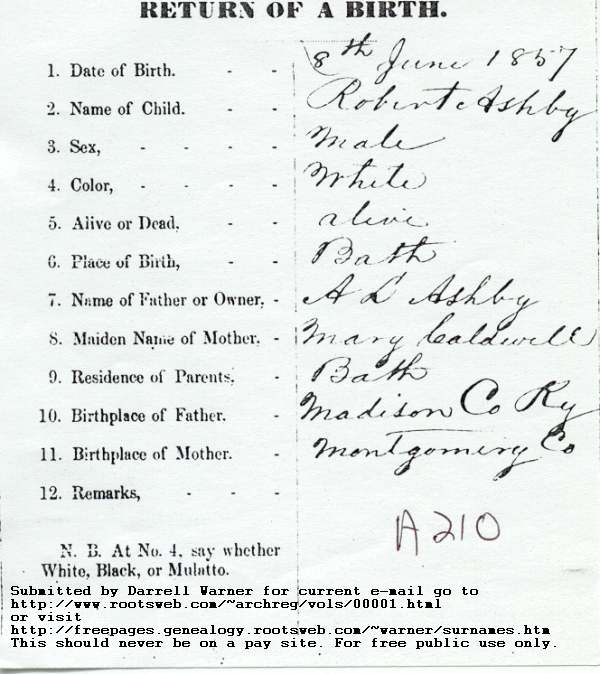 RETURN OF A BIRTH.
1. Date of Birth. - - 8th June 1857
2. Name of Child. - - Robert Ashby
3. Sex, - - - - Male
4. Color, - - - - White
5. Alive or Dead, - - alive.
6. Place of Birth, - - Bath
7. Name of Father or Owner, - A L Ashby
8. Maiden Name of Mother. - Mary Caldwell
9. Residence of Parents, - Bath
10. Birthplace of Father. - Madison Co Ky
11. Birthplace of Mother. - Montgomery Co
12. Remarks, - - -
A210
N. B. At No. 4, say whether
White, Black, or Mulatto.
Submitted by Darrell Warner for current e-mail go to
http://www.rootsweb.com/~archreg/vols/00001.html
or visit
http://freepages.genealogy.rootsweb.com/~warner/surnames.htm
This should never be on a pay site. For free public use only.